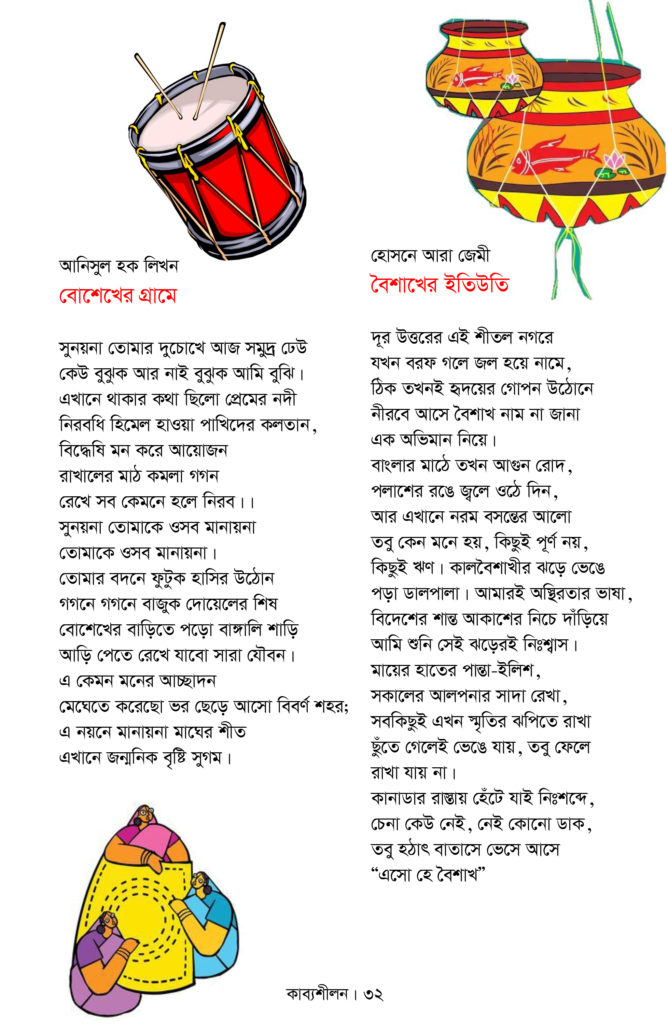 আনিসুল হক লিখন
বোশেখের গ্রামে
সুনয়না তোমার দুচোখে আজ সমুদ্র ঢেউ
কেউ বুঝুক আর নাই বুঝুক আমি বুঝি।
এখানে থাকার কথা ছিলো প্রেমের নদী
নিরবধি হিমেল হাওয়া পাখিদের কলতান,
বিদ্ধেষি মন করে আয়োজন
রাখালের মাঠ কমলা গগন
রেখে সব কেমনে হলে নিরব।।
সুনয়না তোমাকে ওসব মানায়না
তোমাকে ওসব মানায়না।
তোমার বদনে ফুটুক হাসির উঠোন
গগনে গগনে বাজুক দোয়েলের শিষ
বোশেখের বাড়িতে পড়ো বাঙ্গালি শাড়ি
আড়ি পেতে রেখে যাবো সারা যৌবন।
এ কেমন মনের আচ্ছাদন
মেঘেতে করেছো ভর ছেড়ে আসো বিবর্ণ শহর;
এ নয়নে মানায়না মাঘের শীত
এখানে জন্মনিক বৃষ্টি সুগম।
হোসনে আরা জেমী
বৈশাখের ইতিউতি
দূর উত্তরের এই শীতল নগরে
যখন বরফ গলে জল হয়ে নামে,
ঠিক তখনই হৃদয়ের গোপন উঠোনে
নীরবে আসে বৈশাখ নাম না জানা
এক অভিমান নিয়ে।
বাংলার মাঠে তখন আগুন রোদ,
পলাশের রঙে জ্বলে ওঠে দিন,
আর এখানে নরম বসন্তের আলো
তবু কেন মনে হয়, কিছুই পূর্ণ নয়,
কিছুই ঋণ। কালবৈশাখীর ঝড়ে ভেঙে
পড়া ডালপালা। আমারই অস্থিরতার ভাষা,
বিদেশের শান্ত আকাশের নিচে দাঁড়িয়ে
আমি শুনি সেই ঝড়েরই নিঃশ্বাস।
মায়ের হাতের পান্তা-ইলিশ,
সকালের আলপনার সাদা রেখা,
সবকিছুই এখন স্মৃতির ঝপিতে রাখা
ছুঁতে গেলেই ভেঙে যায়, তবু ফেলে
রাখা যায় না।
কানাডার রাস্তায় হেঁটে যাই নিঃশব্দে,
চেনা কেউ নেই, নেই কোনো ডাক,
তবু হঠাৎ বাতাসে ভেসে আসে
“এসো হে বৈশাখ”
কাব্যশীলন। ৩২